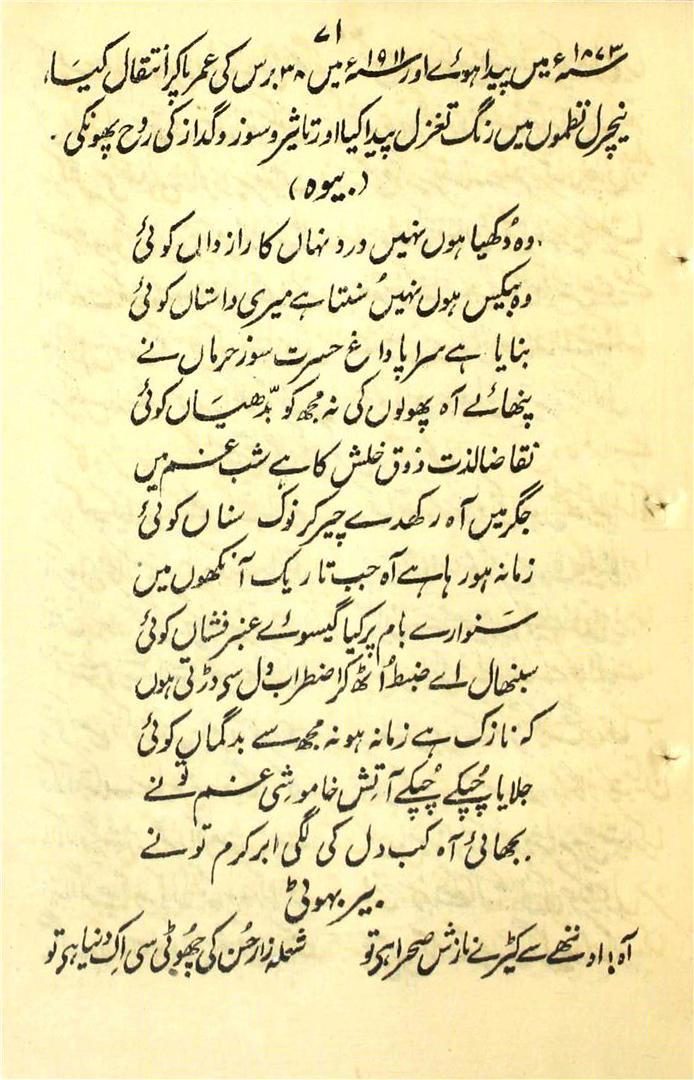 ۷۱
۱۸۷۳ء میں پیدا ہوئے اور ۱۹۱۱ء میں ۳۸ برس کی عمر پاکر انتقال کیا،
نیچرل نظموں میں رنگ تغزل پیدا کیا اور تاثیر و سوز و گداز کی روح پھونکی ۔
(بیوہ)
وہ دُکھیا ہوں نہیں درد نہاں کا راز داں کوئی
وہ بیکس ہوں نہیں سُنتا ہے میری داستاں کوئی
بنایا ہے سراپا داغ حسرت سوز حرماں نے
پنھائے آہ پھولوں کی نہ مجھ کو بدّھیاں کوئی
تقاضا لذت ذوق خلش کا ہے شب غم میں
جگر میں آہ رکھدے چیر کر نوک سناں کوئی
زمانہ ہو رہا ہے آہ جب تاریک آنکھوں میں
سنوارے بام پر کیا گیسوئے عنبر فشاں کوئی
سبنھال اے ضبط اُٹھ کر اضطراب دل سی ڈرتی ہوں
کہ نازک ہے زمانہ ہو نہ مجھ سے بدگماں کوئی
جلایا چُپکے چُپکے آتش خاموشیِ غم تو نے
بجھائی آہ کب دل کی لگی ابر کرم تو نے
بیر بہوٹی
آہ! او ننھے سے کیڑے نازش صحرا ہی تو شعلہ زار حُسن کی چھوٹی سی اِک دنیا ہی تو